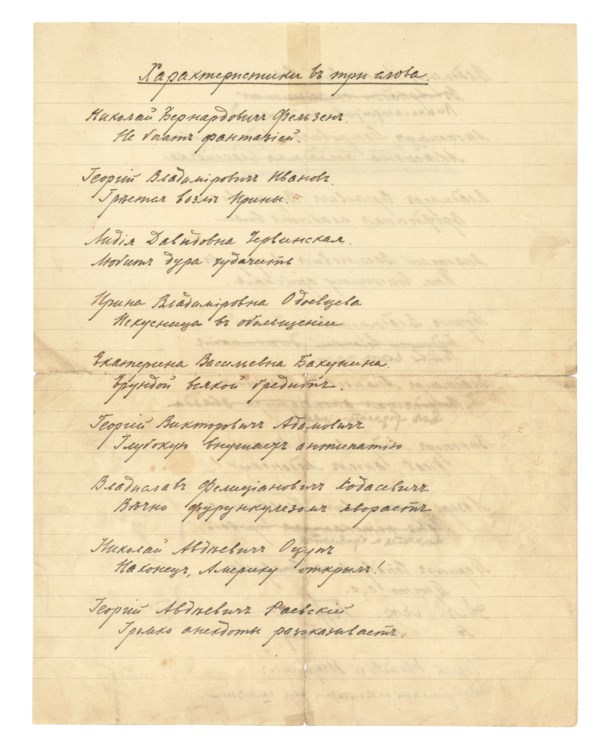 Характеристики въ три слова.
Николай Бернардовичъ Фельзенъ.
Не богатъ фантазіей.
Георгій Владиміровичъ Ивановъ.
Грѣется возлѣ Ирины.
Лидія Давидовна Червинская.
Любитъ дура чудачить
Ирина Владиміровна Одоевцева
Искусница въ обольщеніи
Екатерина Васильевна Бакунина.
Ерундой всякой бредитъ.
Георгій Викторовичъ Адамовичъ
Глубокую внушаетъ антипатію
Владиславъ Фелиціановичъ Ходасевичъ
Вѣчно фурункулезомъ хвораетъ
Николай Авдѣевичъ Оцупъ
Наконецъ, Америку открылъ!
Георгій Авдѣевичъ Раевскій
Громко анекдоты разсказываетъ.